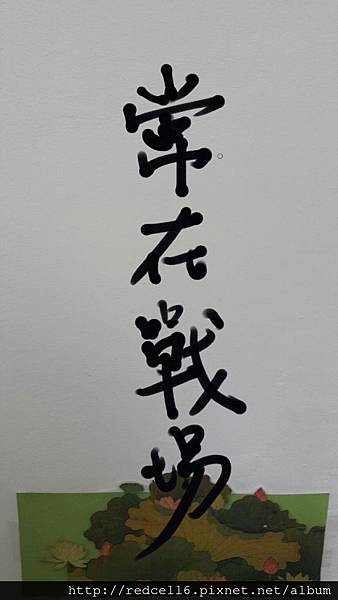 常在戰場
http://redcell6.pixnet.net/album